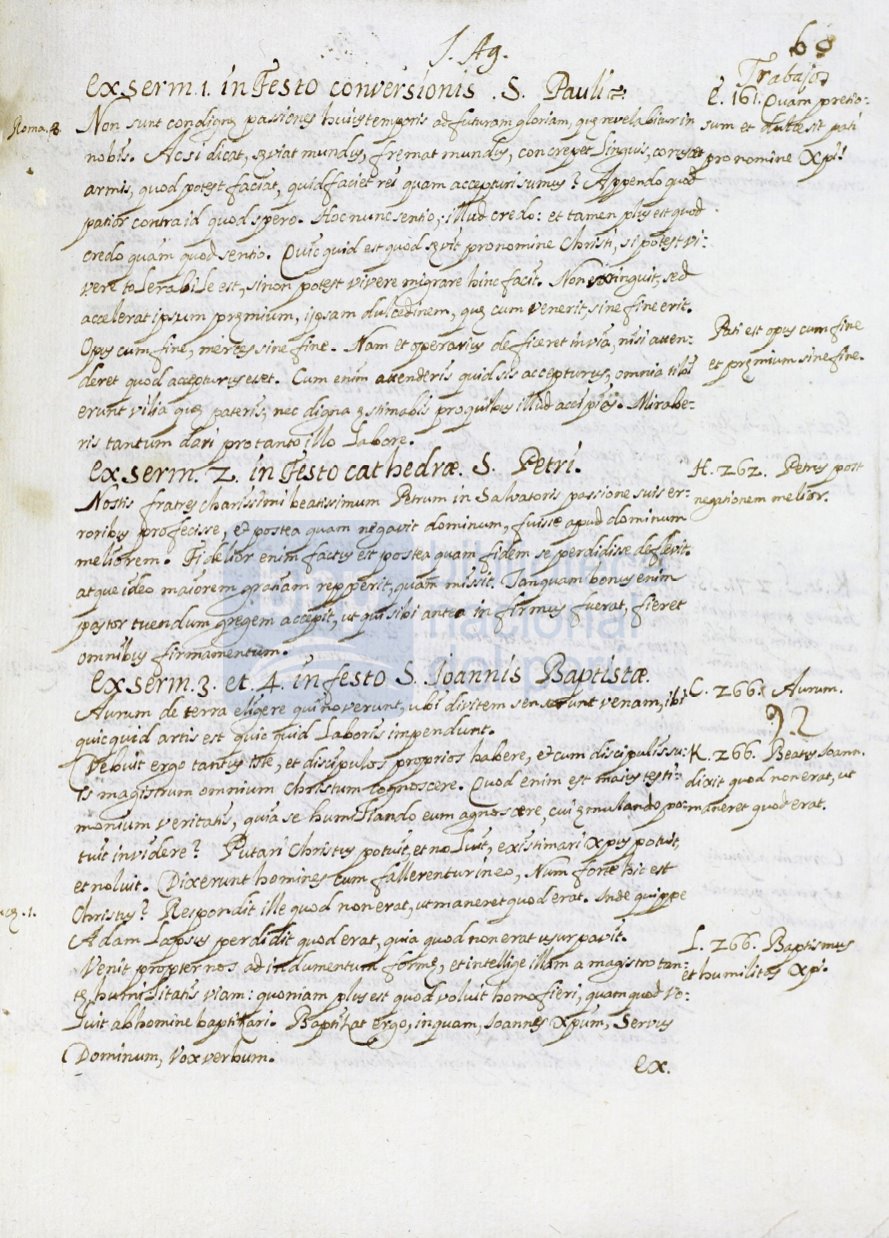 S. Ag.
60
Trabajo
Ex serm. 1. in Festo conversionis. S. Pauli.
E. 161. Quam pretio-
sum et dulce sit pati
pro nomine Xpi.
Roma. 8
Non sunt condignę passiones huius temporis ad futuram gloriam, quę revelabitur in
nobis. Ac si dicat, sęviat mundus, fremat mundus, concrepet linguis, coruscet
armis, quod potest faciat, quid faciet rei quam accepturi sumus? Appendo quod
patior contra id quod spero. Hoc nunc sentio, illud credo: et tamen plus est quod
credo quam quod sentio. Quic quid est quod sęvit pro nomine Christi, si potest vi-
vere tolerabile est, si non potest vivere migrare hinc facit. Non extinguit, sed
accelerat ipsum pręmium, ipsam dulcedinem, quę cum venerit, sine fine erit.
Opus cum fine, merces sine fine. Nam et operarius deficeret in via, nisi atten-
deret quod accepturus esset. Cum enim attenderis quid sis accepturus, omnia tibi
erunt vilia quę pateris, nec digna ęstimabis pro quibus illud accipies. Mirabe-
ris tantum dari pro tanto illo labore.
Pati est opus cum fine
et pręmium sine fine.
Ex serm. 2. in Festo cathedræ. S. Petri.
H. 262. Petrus post
negationem melior.
Nostis fratres charissimi beatissimum Petrum in Salvatoris passione suis er-
roribus profecisse, et postea quam negavit dominum, fuisse apud dominum
meliorem. Fidelior enim factus est postea quam fidem se perdidisse deflevit.
atque ideo maiorem gratiam repperit, quam missit. Tanquam bonus enim
pastor tuendum gregem accepit, ut qui sibi antea infirmus fuerat, fieret
omnibus firmamentum.
Ex serm. 3. et. 4. in festo S. Ioannis Baptistæ.
C. 266. Aurum.
92
Aurum de terra eligere qui noverunt, ubi divitem senserunt venam, ibi
quicquid artis est quic quid laboris impendunt.
K. 266. Beatus Ioann.
dixit quod non erat, ut
maneret quod erat.
Debuit ergo tantus iste, et discipulos proprios habere, et cum discipulis su-
is magistrum omnium Christum cognoscere. Quod enim est maius testi-
monium veritatis, quia se humiliando eum agnoscere, cui ęmulando po-
tuit invidere? Putari Christus potuit, et noluit, existimari Xpus potuit,
et noluit. Dixerunt homines cum fallerentur in eo, Num forte hic est
Christus? Respondit ille quod non erat, ut maneret quod erat. Inde quippe
Adam lapsus perdidit quod erat, quia quod non erat usurpavit.
L. 266. Baptismus
et humilitas Xpi.
Venit propter nos ad indumentum formę, et intellige illam a magistro tan-
tę humilitatis viam: quoniam plus est quod voluit homo fieri, quam quod vo-
luit ab homine baptizari. Baptizat ergo, inquam, Ioannes Xpum, Servus
Dominum, Vox verbum.
Ex.
biblioteca
nacional
del perú